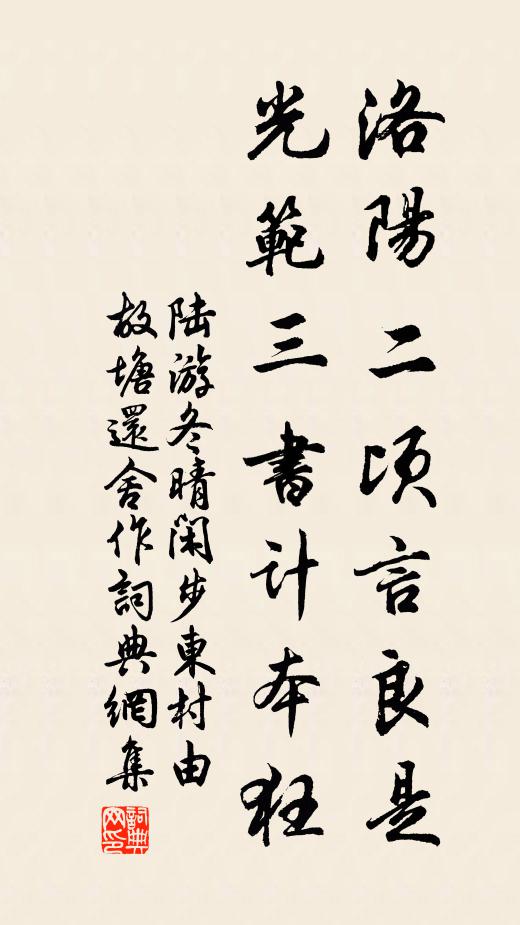 洛陽二頃言良是
光範三書計本狂
陆游冬晴閑步東村由
故塘還舍作詞典網集
詞典网印